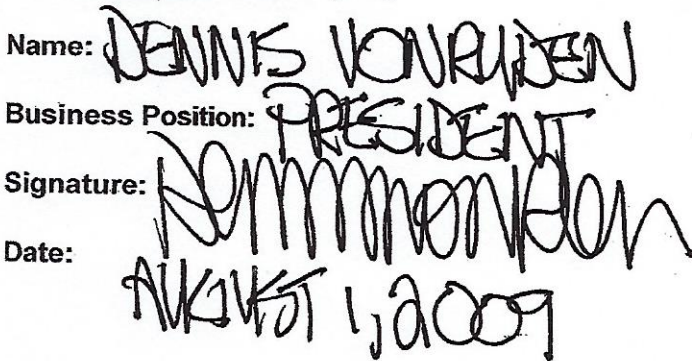 Name: DENNIS VONRUDEN
Business Position: PRESIDENT
Signature:
Date: AUGUST 1, 2009